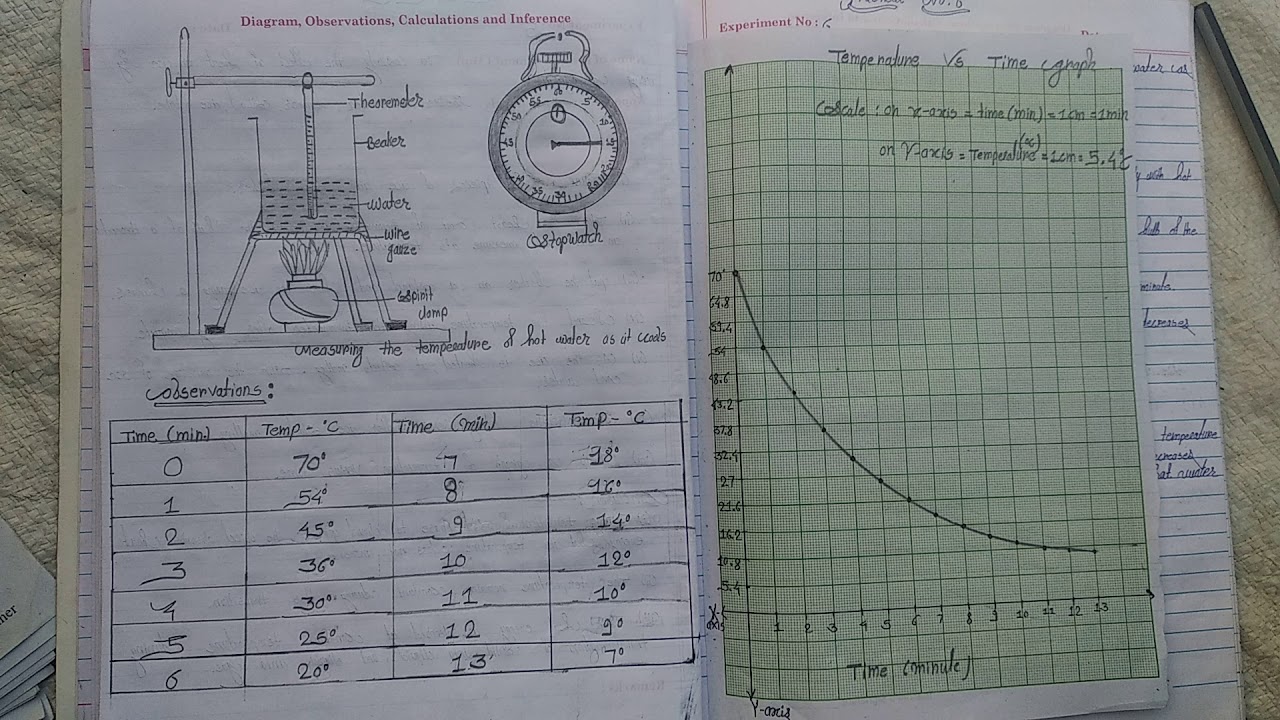 Diagram, Observations, Calculations and Inference
Theoremeter
Beaker
Water
wire
gauze
Spirit
Lamp
Stopwatch
Measuring the temperature of hot water as it cools
Observations:
Time (min.) Temp - °C Time (min) Temp - °C
0 70° 7 18°
1 54° 8 16°
2 45° 9 14°
3 36° 10 12°
4 30° 11 10°
5 25° 12 9°
6 20° 13 7°
Experiment No : 6
Temperature Vs Time graph
Scale: on x-axis = time (min) = 1cm = 1min
on Y-axis = Temperature (°C) = 1cm = 5.4°C
70°
64.8
59.4
54
48.6
43.2
37.8
32.4
27
21.6
16.2
10.8
5.4
X-
axis
1 2 3 4 5 6 7 8 9 10 11 12 13
Time (minute)
Y-axis
water
with hot
of the
minute.
decreases
temperature
hot water